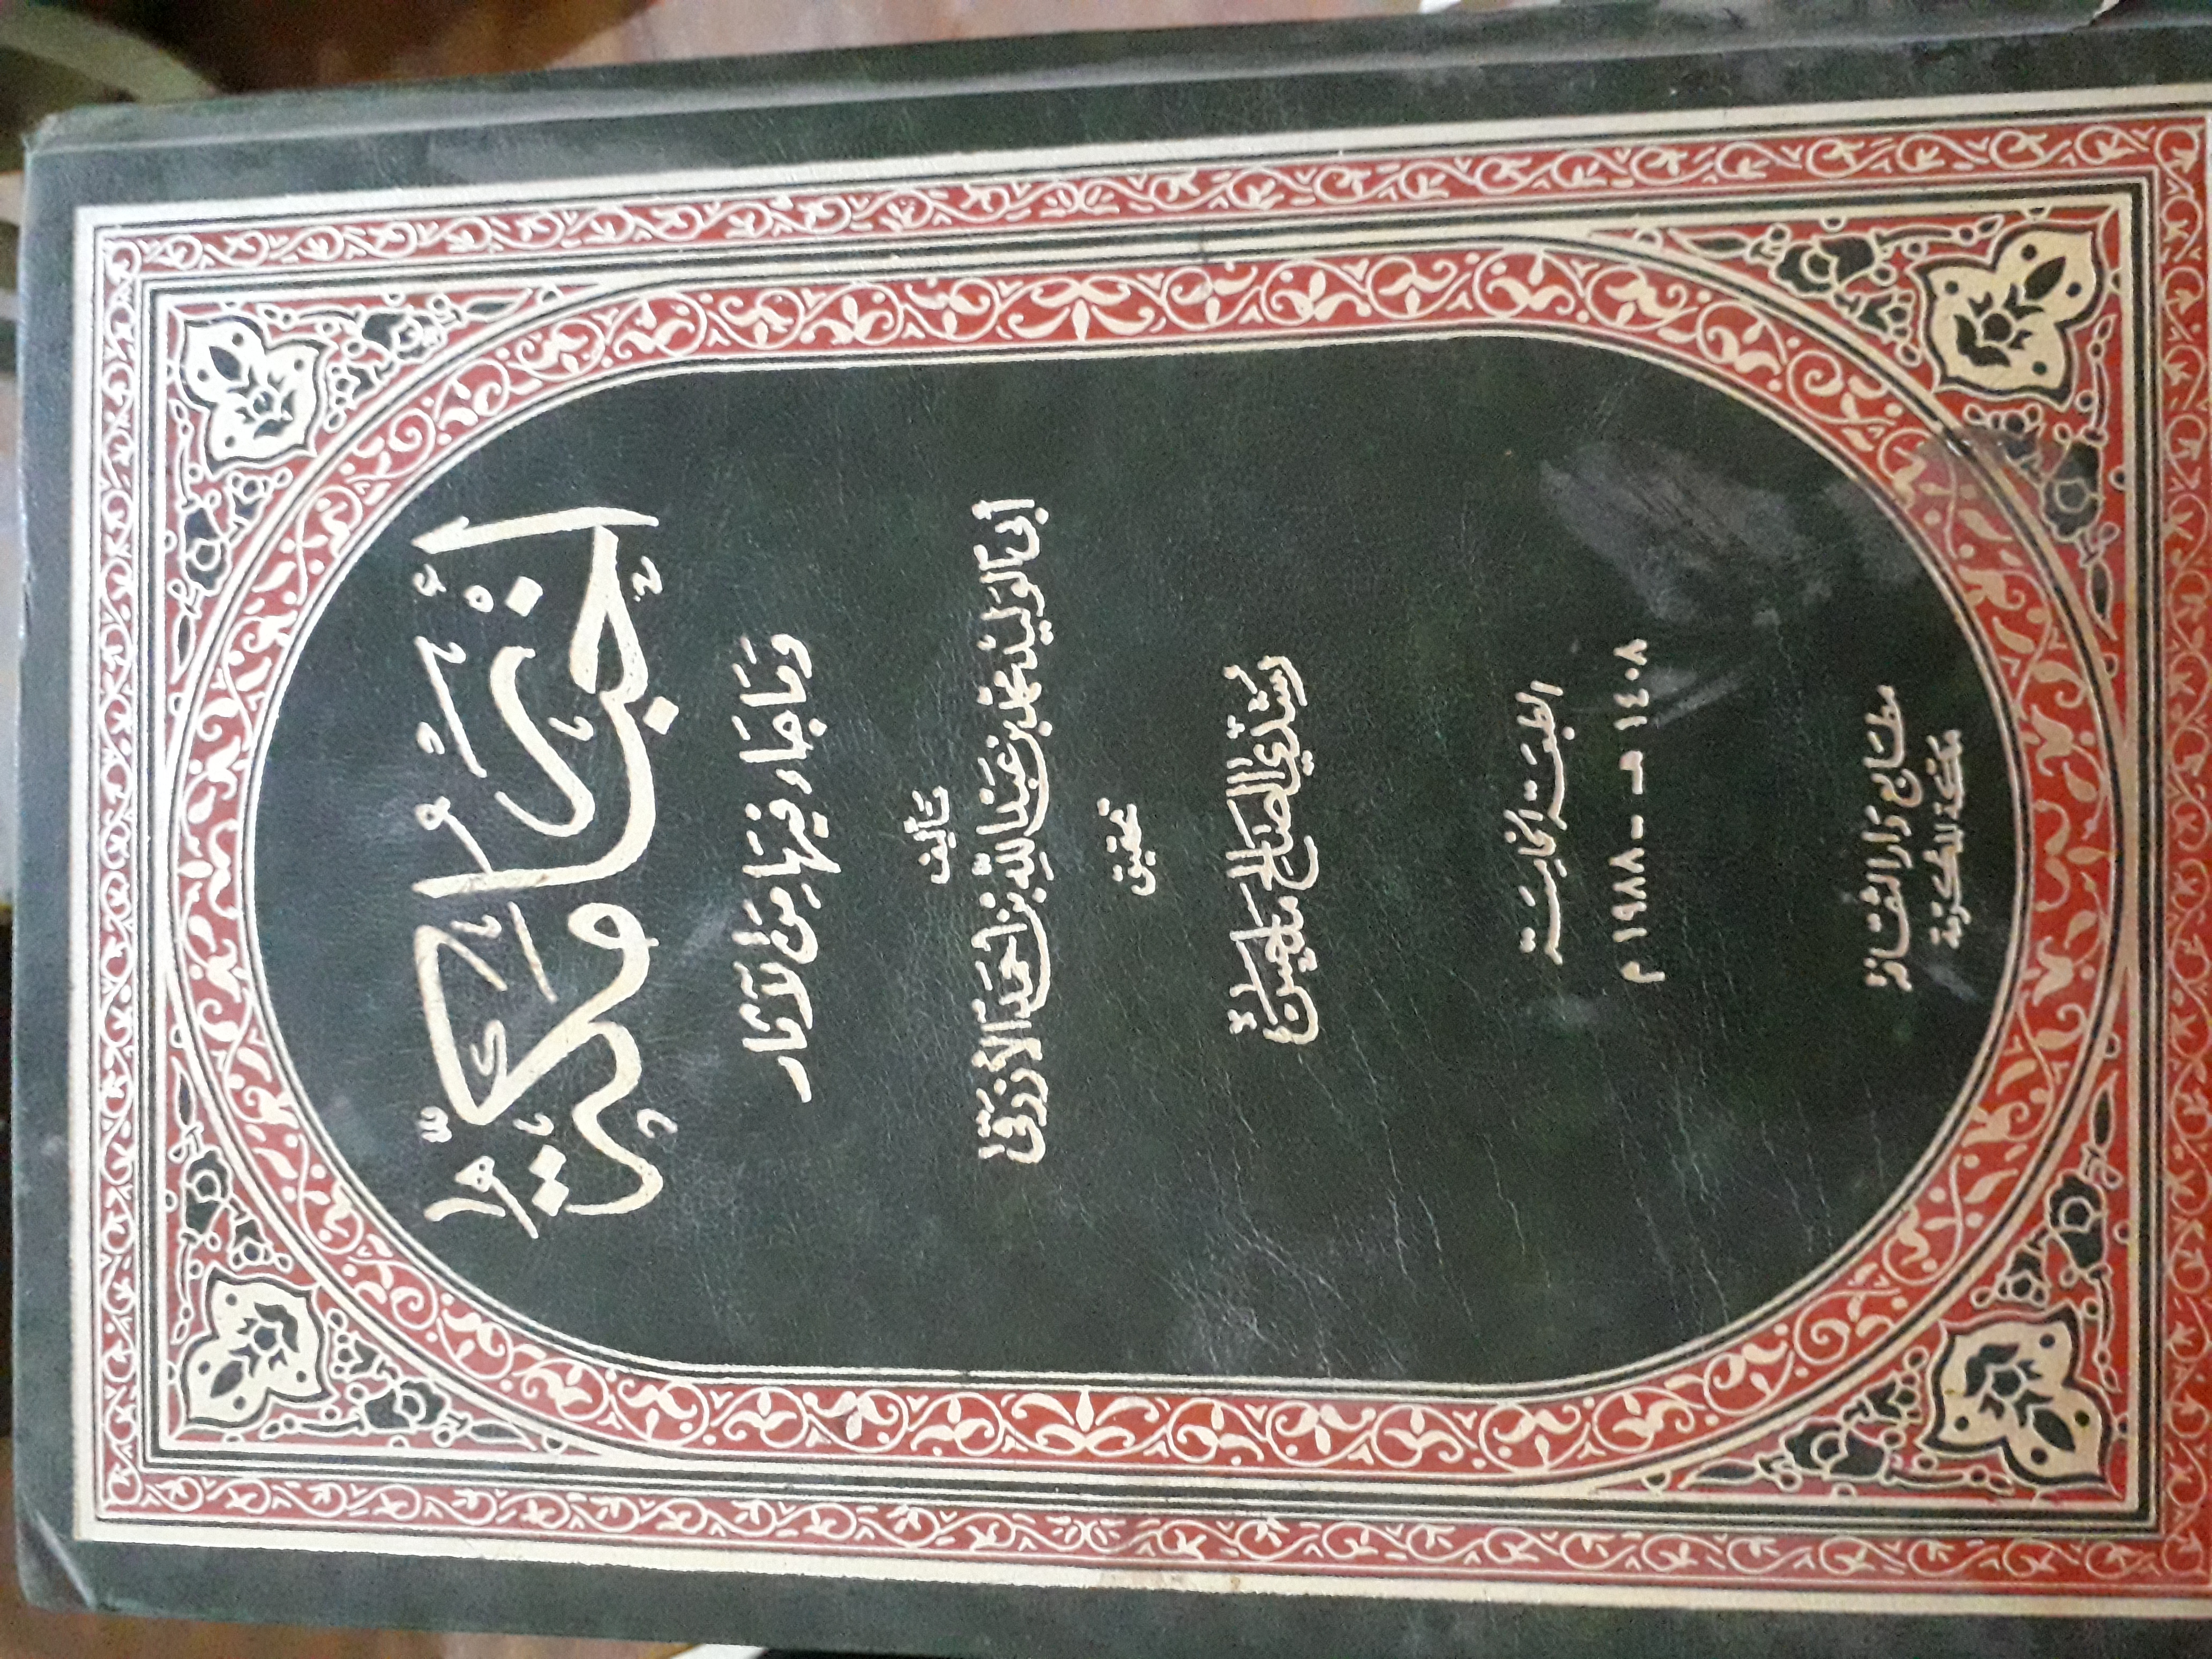 أخبار مكة
وما جاء فيها من الآثار
تأليف
أبي الوليد محمد بن عبد الله بن أحمد الأزرقي
تحقيق
رشدي الصالح ملحس
الطبعة الخامسة
١٤٠٨ هـ - ١٩٨٨ م
مطابع دار الثقافة
مكة المكرمة